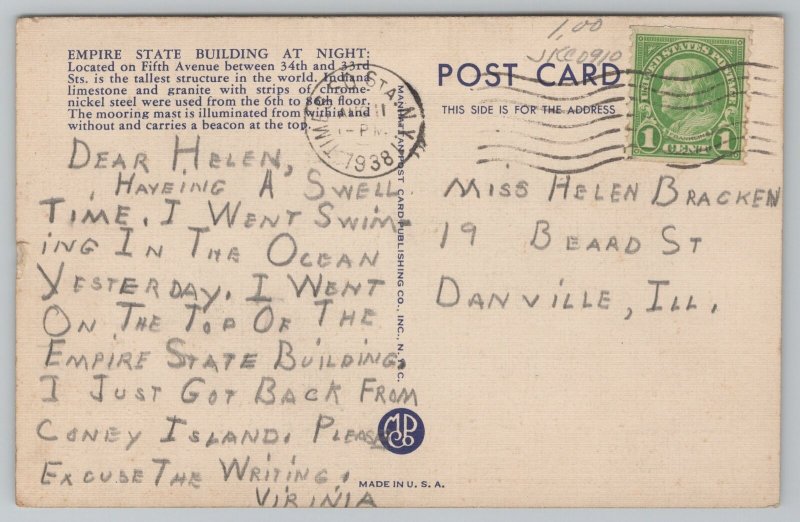 EMPIRE STATE BUILDING AT NIGHT:
Located on Fifth Avenue between 34th and 33rd
Sts. is the tallest structure in the world. Indiana
limestone and granite with strips of chrome-
nickel steel were used from the 6th to 86th floor.
The mooring mast is illuminated from within and
without and carries a beacon at the top.
DEAR HELEN,
HAVEING A SWELL
TIME. I WENT SWIM-
ING IN THE OCEAN
YESTERDAY. I WENT
ON THE TOP OF THE
EMPIRE STATE BUILDING.
I JUST GOT BACK FROM
CONEY ISLAND. PLEASE
EXCUSE THE WRITING.
VIRINIA
MANHATTAN POST CARD PUBLISHING CO., INC., N.Y.C.
MPC
Co
MADE IN U. S. A.
TIMES SQ. STA. N.Y.
AUG 11
PM
1938
1,00
JKC0910
POST CARD
THIS SIDE IS FOR THE ADDRESS
UNITED STATES POSTAGE
FRANKLIN
1 CENT 1
MISS HELEN BRACKEN
19 BEARD ST
DANVILLE, ILL.